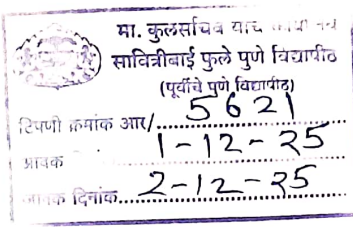 मा. कुलसचिव यांचे
सावित्रीबाई फुले पुणे विद्यापीठ
(पूर्वीचे पुणे विद्यापीठ)
टिपणी क्रमांक आर/ 5621
आवक 1-12-25
जावक दिनांक 2-12-25